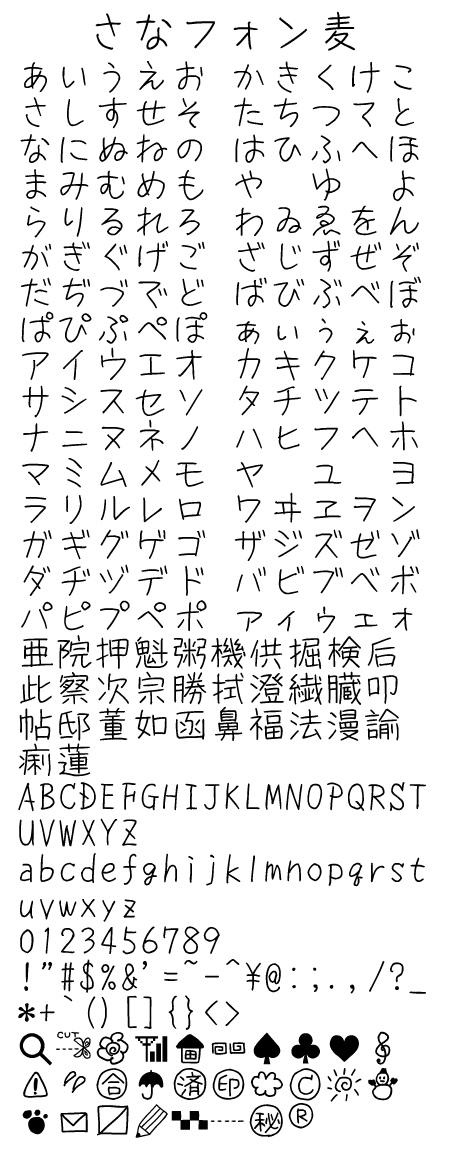 さなフォン麦
あいうえお かきくけこ
さしすせそ たちつてと
なにぬねの はひふへほ
まみむめも や ゆ よ
らりるれろ わゐゑをん
がぎぐげご ざじずぜぞ
だぢづでど ばびぶべぼ
ぱぴぷぺぽ ぁぃぅぇぉ
アイウエオ カキクケコ
サシスセソ タチツテト
ナニヌネノ ハヒフヘホ
マミムメモ ヤ ユ ヨ
ラリルレロ ワヰヱヲン
ガギグゲゴ ザジズゼゾ
ダヂヅデド バビブベボ
パピプペポ ァィゥェォ
亜院押魁粥機供掘検后
此察次宗勝拭澄繊臓叩
帖邸董如函鼻福法漫諭
痢蓮
ABCDEFGHIJKLMNOPQRST
UVWXYZ
abcdefghijklmnopqrst
uvwxyz
0123456789
!"#$%&'=~-^¥@:;.,/?_
*+`()[]{}<>
CUT
合済印©
秘®